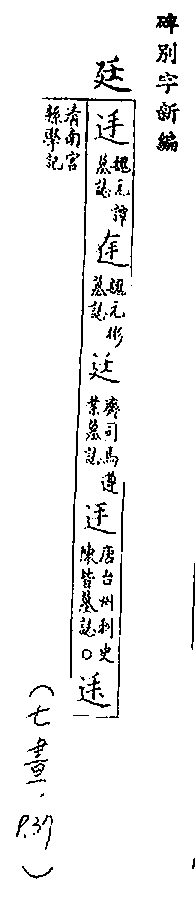 碑別字新編
廷
迋
魏元
墓誌
魏元彬
墓誌
廷
齊司馬遵
業墓誌
迋
唐台州刺史
陳皆墓誌○
清南宮
縣學記
(七畫.P.37)